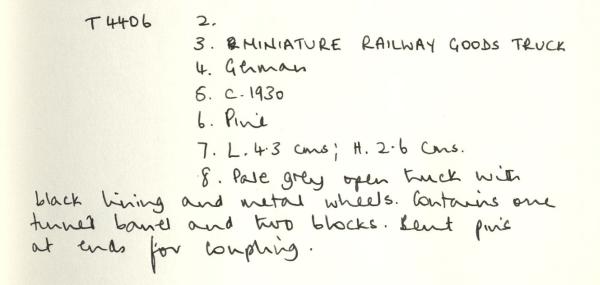 T4406 2.
3. MINIATURE RAILWAY GOODS TRUCK
4. German
5. c.1930
6. Pine
7. L. 4.3 cms; H. 2.6 cms.
8. Pale grey open truck with
black lining and metal wheels. Contains one
turned barrel and two blocks. Bent pins
at ends for coupling.